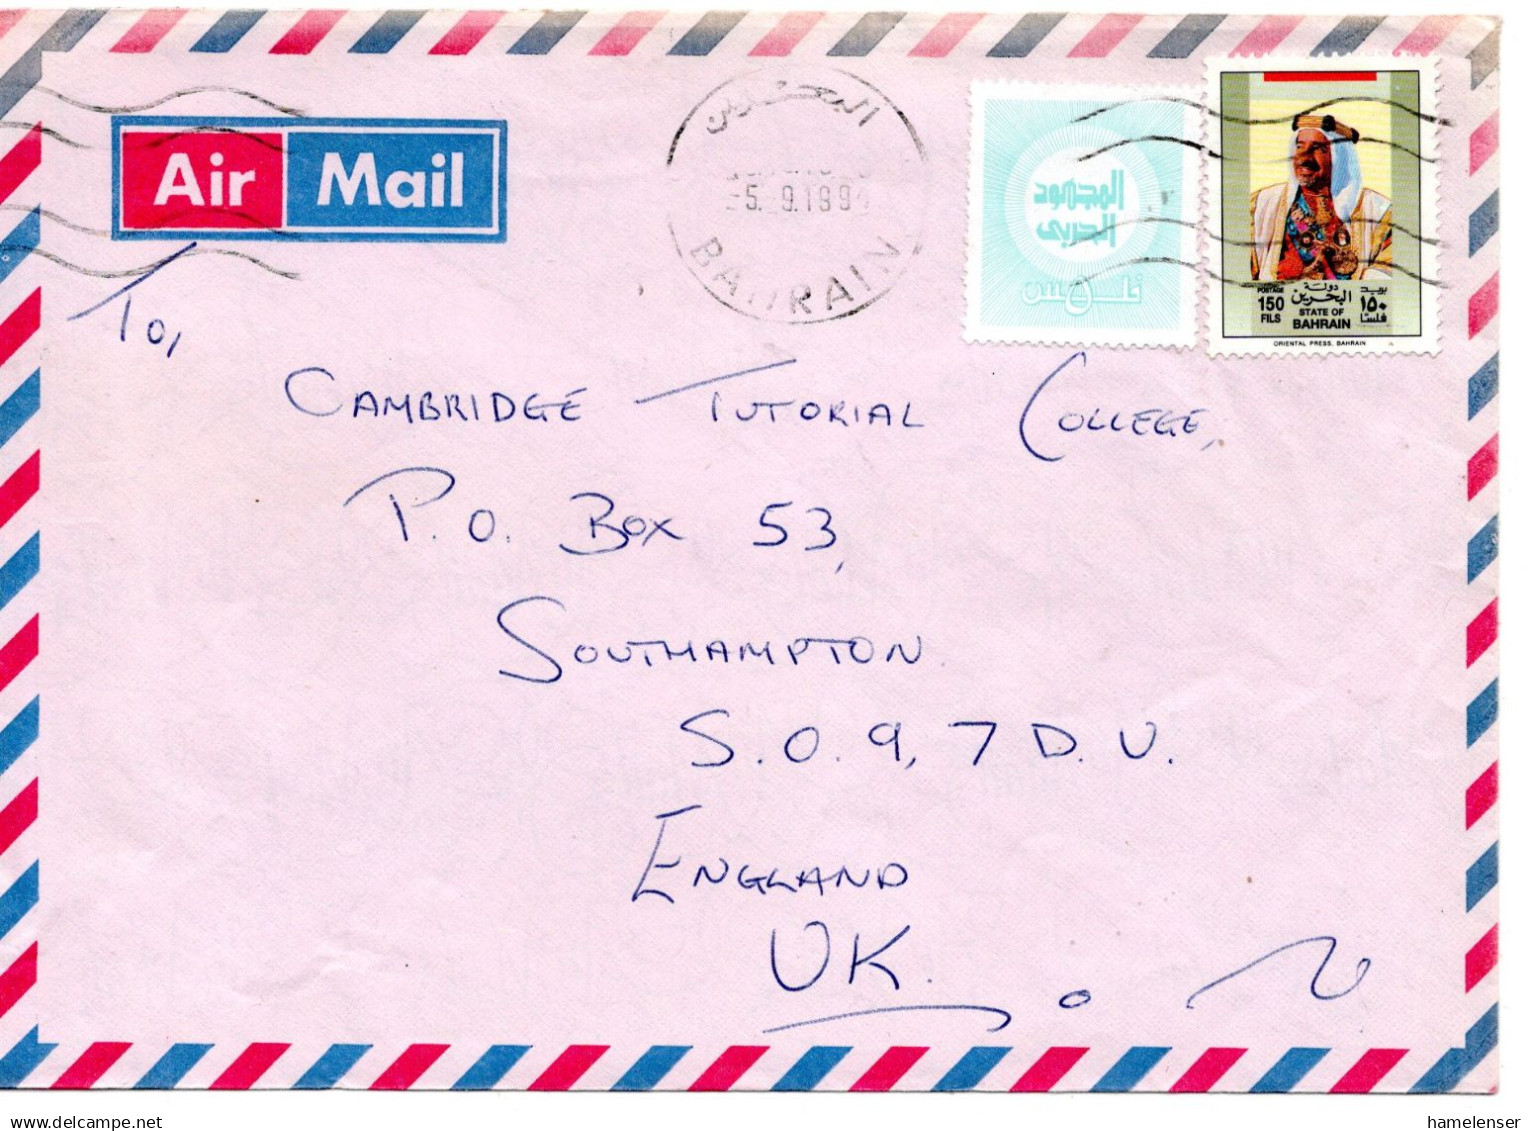 Air Mail
البحرين
-5. 9.1994
BAHRAIN
المجهود
الحربي
فلس ٥
POSTAGE
150
FILS
دولة
البحرين
STATE OF
BAHRAIN
بريد
١٥٠
فلسًا
ORIENTAL PRESS, BAHRAIN
To,
CAMBRIDGE TUTORIAL COLLEGE,
P.O. BOX 53,
SOUTHAMPTON
S.O.9, 7 D.U.
ENGLAND
UK.
hamelenser